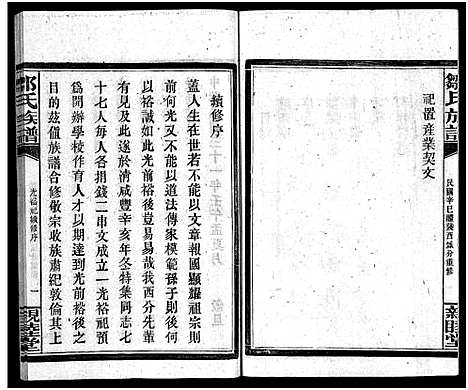 鄒氏族譜
民國辛巳醴陵西派分重修
親睦堂
祀置產業契文
續修序
蓋人生在世若不能以文章報國顯耀祖宗則於
前何光又不能以道法傳家模範孫子則後何
以裕誠如此光前裕後豈易易哉我西分先輩
有見及此遂於清咸豐十一年冬特集同志七
十七人每各捐錢二串文成立一光裕祀預
為開辦學校作育人才以期達到光前裕後之
目的茲值族譜合修敬宗收族肅紀敦倫其上
鄒氏族譜
光裕祀續修序
一
親睦堂